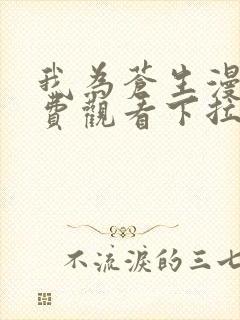 我為蒼生漫
費觀看下拉
不流淚的三七